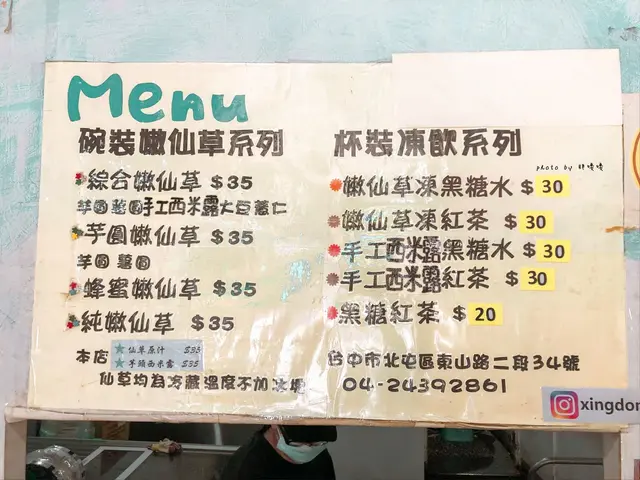 Menu
碗裝嫩仙草系列
綜合嫩仙草 $35
芋圓 薯圓 手工西米露 大豆 薏仁
芋圓嫩仙草 $35
芋圓 薯圓
蜂蜜嫩仙草 $35
純嫩仙草 $35
本店
仙草原汁 $35
芋頭西米露 $35
仙草均為冷藏溫度不加冰塊
杯裝凍飲系列
photo by
嫩仙草凍黑糖水 $30
嫩仙草凍紅茶 $30
手工西米露黑糖水 $30
手工西米露紅茶 $30
黑糖紅茶 $20
台中市北屯區東山路二段34號
04-24392861
xingdon